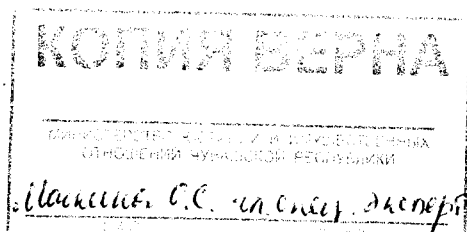 КОПИЯ ВЕРНА
МИНИСТЕРСТВО И ИМУЩЕСТВЕННЫХ
ОТНОШЕНИЙ ЧУВАШСКОЙ РЕСПУБЛИКИ
С.С. гл. спец. эксперт